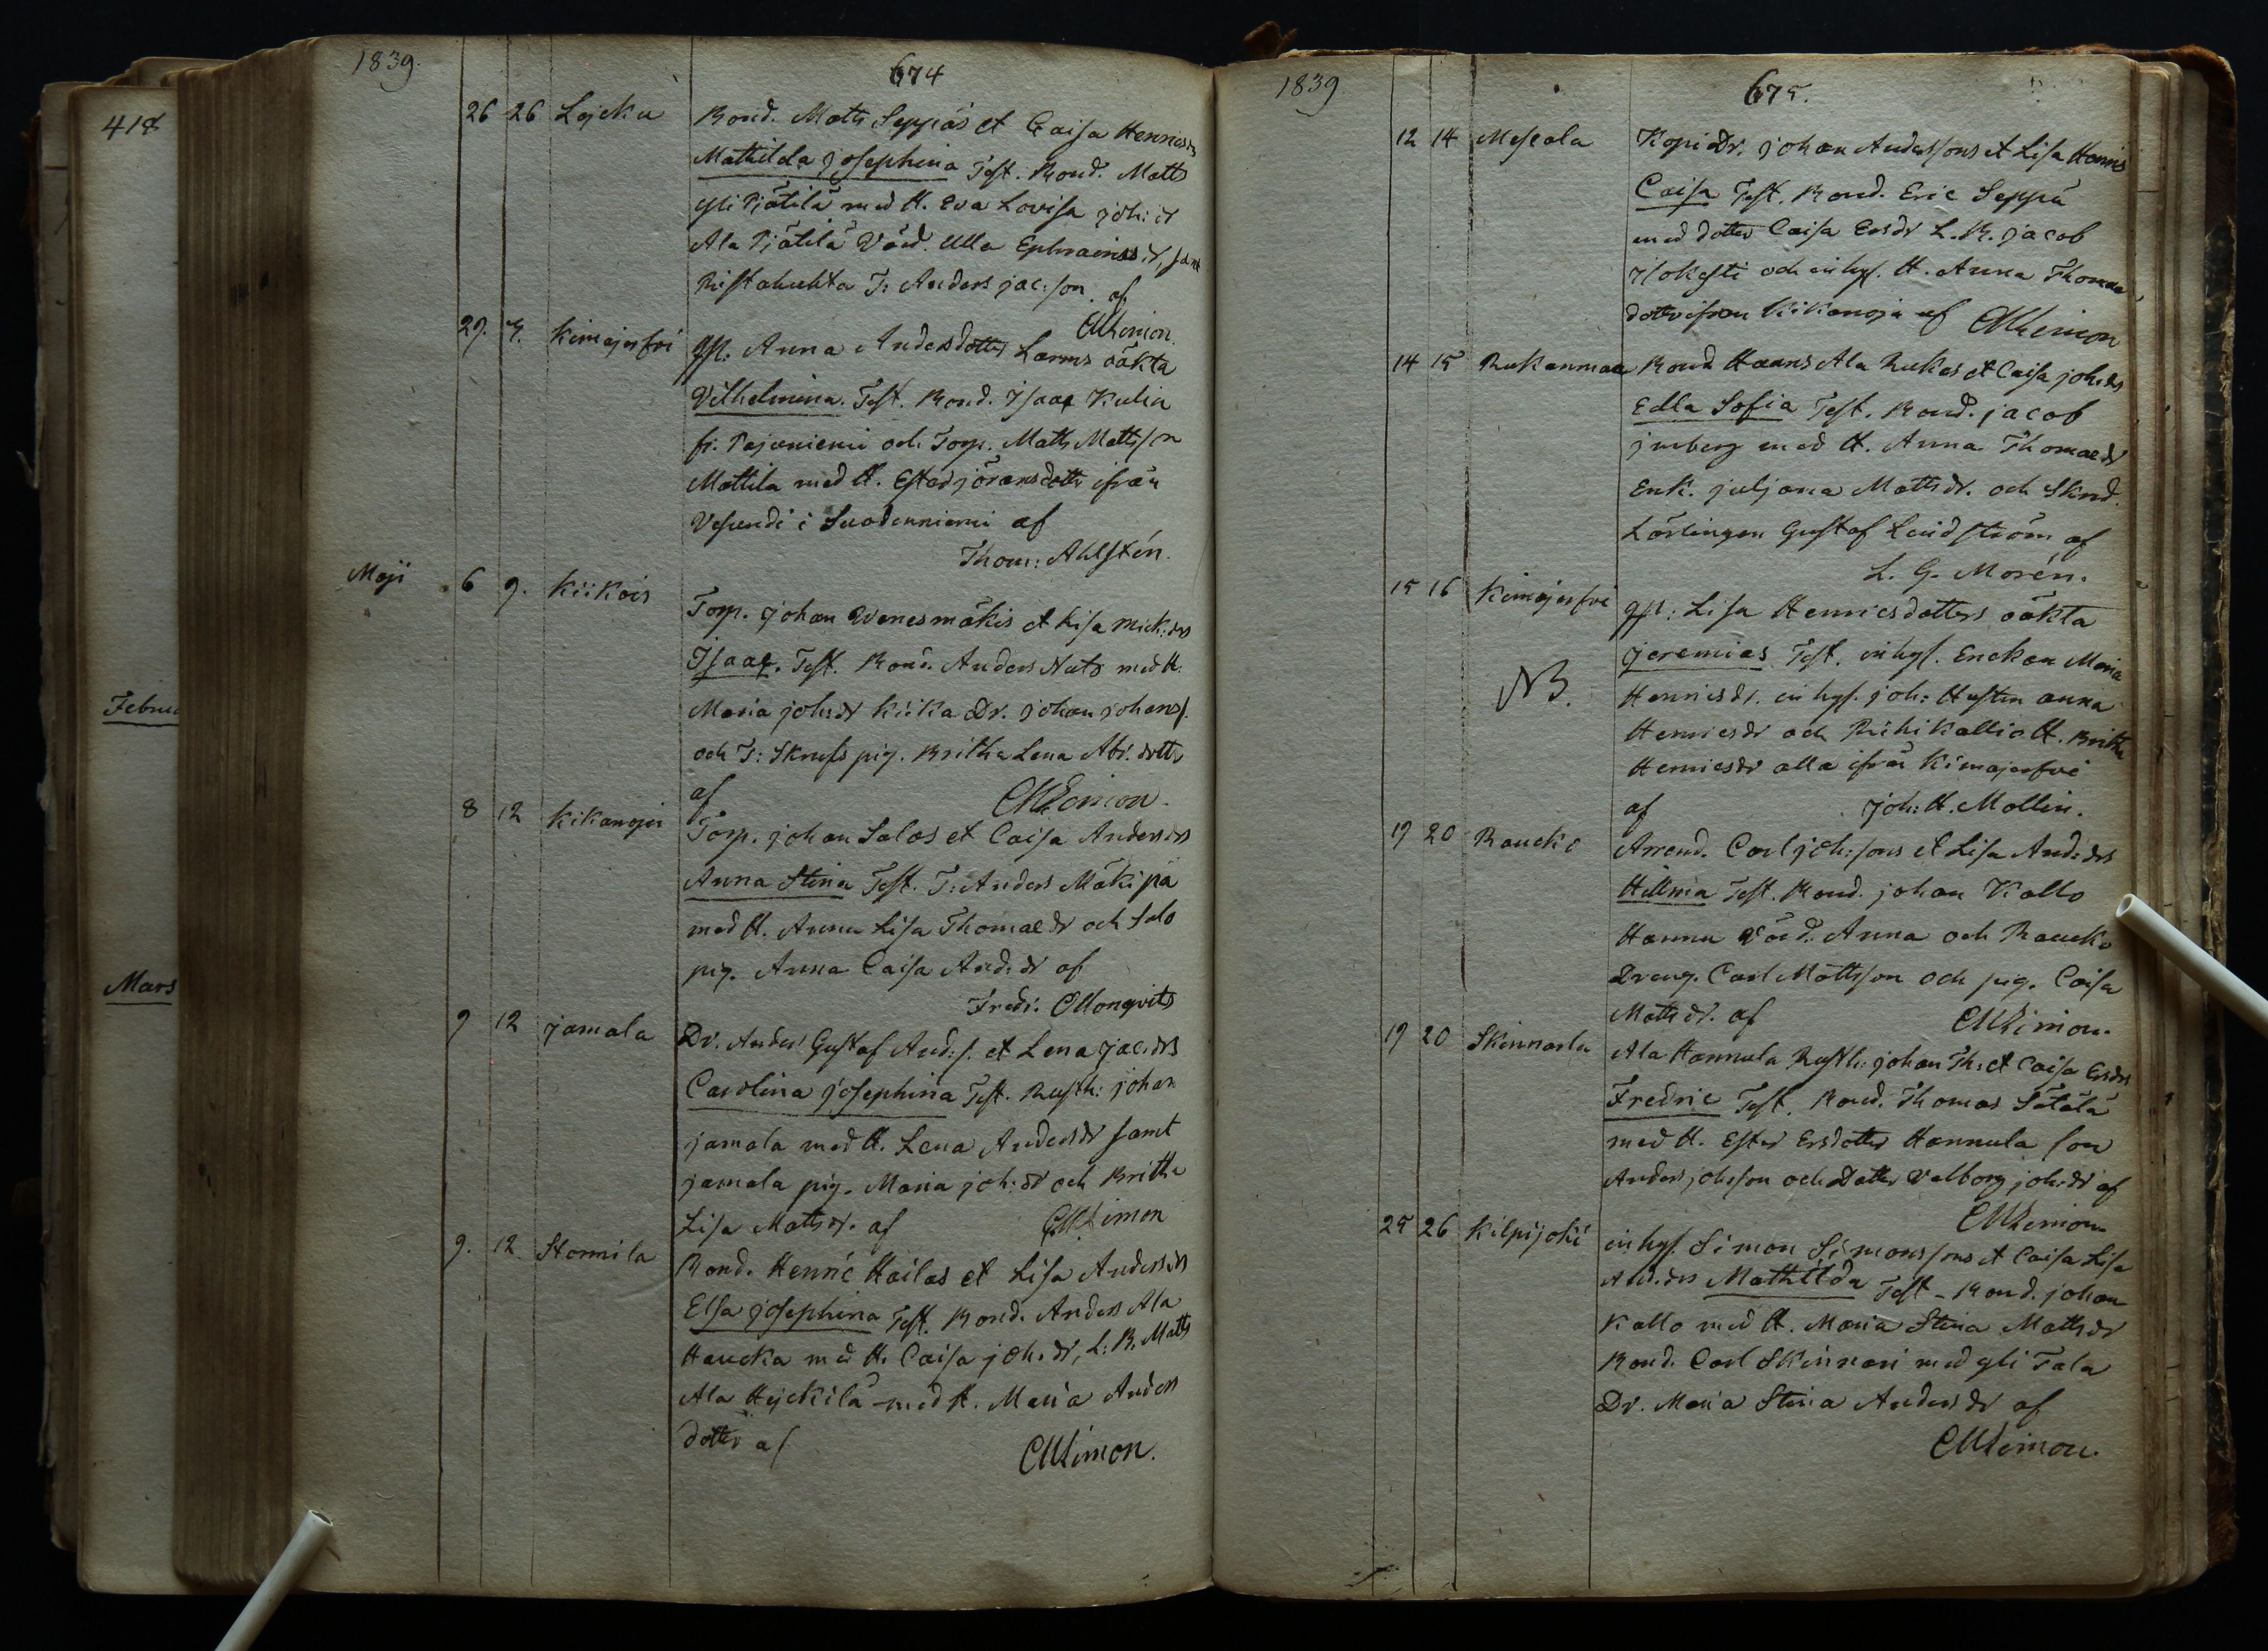 418
Febru
Mars
1839.
674
26 26 Lejcku Bond. Matts Seppäs et Caisa Henricsdrs
Mathilda Josephina Test. Bond. Matts
yli Pjätilä med H. Eva Lovisa Joh: dr
Ala Pjätilä Ulla Ephraimsdr, samt
Ristahuhta T: Anders Jac:son. af
27. Kimajerfvi Anna Andersdotter oäkta
Vilhelmina. Test. Bond. Isaac Kulia
fr. Pajuniemi och Torp. Matts Mattsson
Mattila med H. Ester Jöransdotter ifrån
i Suodenniemi af
Thom: Ahlstén.
Maji 6 9. Kiikois Torp. Johan Venesmäkis et Lisa Mick:drs
Isaac. Test. Bond. Anders med H.
Maria Joh:dr Kiika Dr. Johan Johans.
och T: pig. Britha Lena Abr:dotter
af
8 12 Kikanoja Torp. Johan Salos et Caisa Andersdrs
Anna Stina Test. T: Anders Mäkipä
med H. Anna Lisa Thomaedr och Salo
pig. Anna Caisa And:dr af
Fredr:
9 12 Jamala Dr. Anders Gustaf And:s. et Lena Jac:drs
Carolina Josephina Test. Rusth: Johan
Jamala med H. Lena Andersdr samt
Jamala pig. Maria Joh:dr och Britha
Lisa Mattsdr. af
9. 12. Stormila Bond. Henric Hailas et Lisa Andersdrs
Elsa Josephina Test. Bond. Anders Ala
Haucka med H. Caisa Joh:dr, L: B. Matts
Ala Hejckilä med H. Maria Anders
dotter af
1839
675.
12 14 Mescala Dr. Johan Anderssons et Lisa Henrics
Caisa Test. Bond. Eric Seppä
med dotter Caisa Ersdr L. B. Jacob
och inhys. H. Anna Thomae
dotter ifrån Kikanoja af
14 15 Rukanmaa Bond Hanns Ala Rukas et Caisa Joh:drs
Edla Sofia Test. Bond. Jacob
med H. Anna Thomaedr
Enk. Juljana Mattsdr. och Skrd.
Lärlingen Gustaf Lindström af
L. G. Morén.
15 16 Kimajerfvi Lisa Henricsdotters oäkta
NB.
Jeremias Test. inhys. Enckan Maria
Henricsdr. inhys. Joh: Hustru Anna
Henricsdr och Rihikallio H. Britha
Henricsdr alla ifrån Kimajerfvi
af Joh: H. Mollin.
19 20 Raucko Arrend. Carl Joh:sons et Lisa And:drs
Hillma Test. Bond. Johan Kallo
Hannu Anna och Raucko
Dreng. Carl Mattsson och pig. Caisa
Mattsdr. af
19 20 Skinnarla Ala Hannula Rusth: Johan Th: et Caisa Ersdrs
Fredric Test. Bond. Thomas Sätälä
med H. Ester Ersdotter Hannula son
Anders Johsson och Dotter Valborg Joh:dr af
25 26 Kilpijoki inhys. Simon Simonssons et Caisa Lisa
And:drs Mathilda Test. Bond. Johan
Kallo med H. Maria Stina Mattsdr
Bond. Carl Skinnari med yli Tala
Dr. Maria Stina Andersdr af